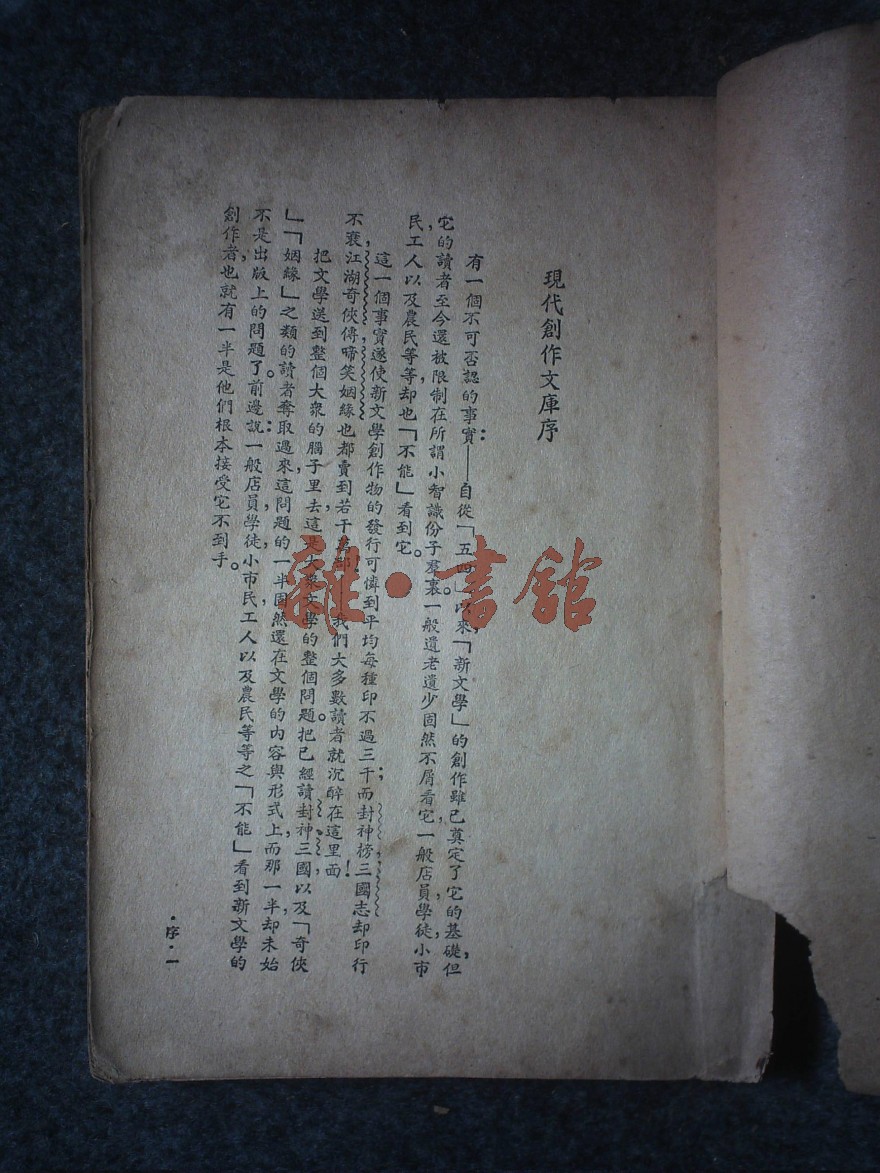 現代創作文庫序
有一個不可否認的事實：——自從「五四」以來，「新文學」的創作雖已奠定了它的基礎，但
它的讀者，至今還被限制在所謂小智識份子羣裏。一般遺老遺少固然不屑看它，一般店員，學徒，小市
民，工人，以及農民等等，却也「不能」看到它。
這一個事實，遂使新文學創作物的發行可憐到平均每種印不過三千；而封神榜，三國志却印行
不衰，江湖奇俠傳，啼笑姻緣也都賣到若干萬部！我們大多數讀者就沉醉在這里面！
把文學送到整個大衆的腦子里去，這是大衆文學的整個問題。把已經讀封神，三國，以及「奇俠
」「姻緣」之類的讀者奪取過來，這問題的一半固然還在文學的內容與形式上，而那一半，却未始
不是出版上的問題了。前邊說：一般店員，學徒，小市民，工人，以及農民等等之「不能」看到新文學的
創作者，也就有一半是他們根本接受它不到手。
·序·一
雜·書館